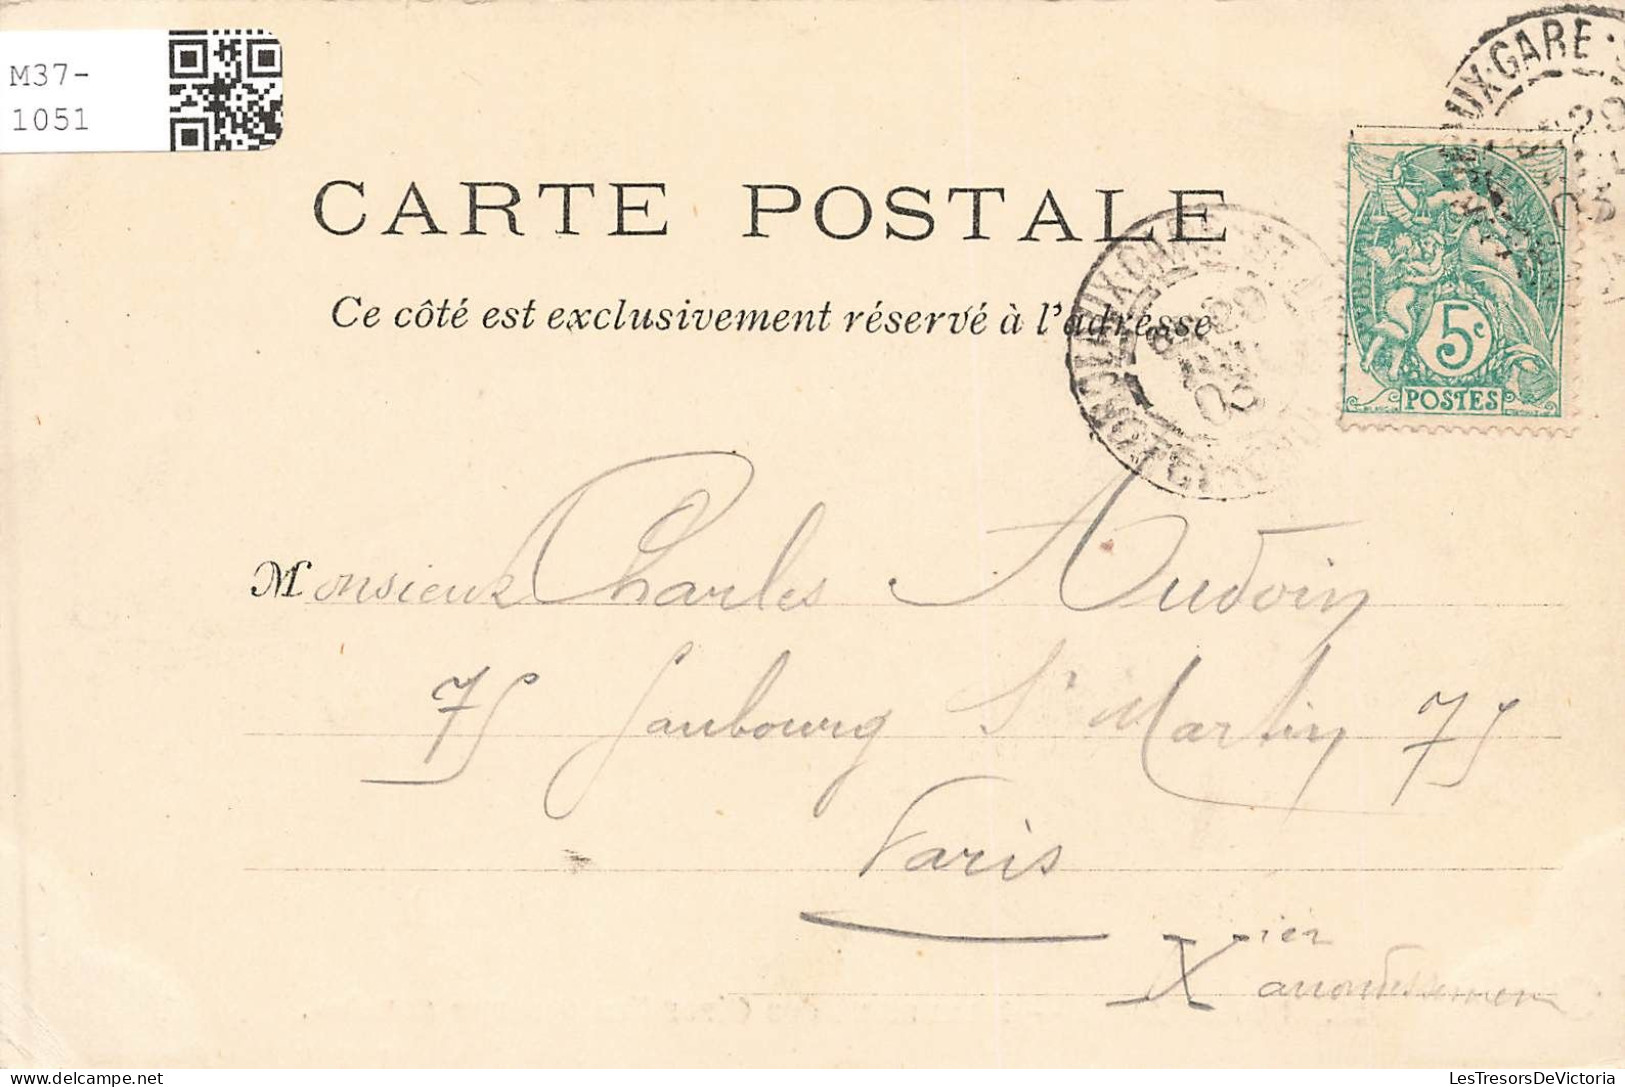 M37-
1051
CARTE POSTALE
Ce côté est exclusivement réservé à l'adresse
5c
POSTES
UX·GARE
29
03
Monsieur Charles Audoin
75 faubourg St Martin 75
Paris
X ier
arrondissement
LesTresorsDeVictoria